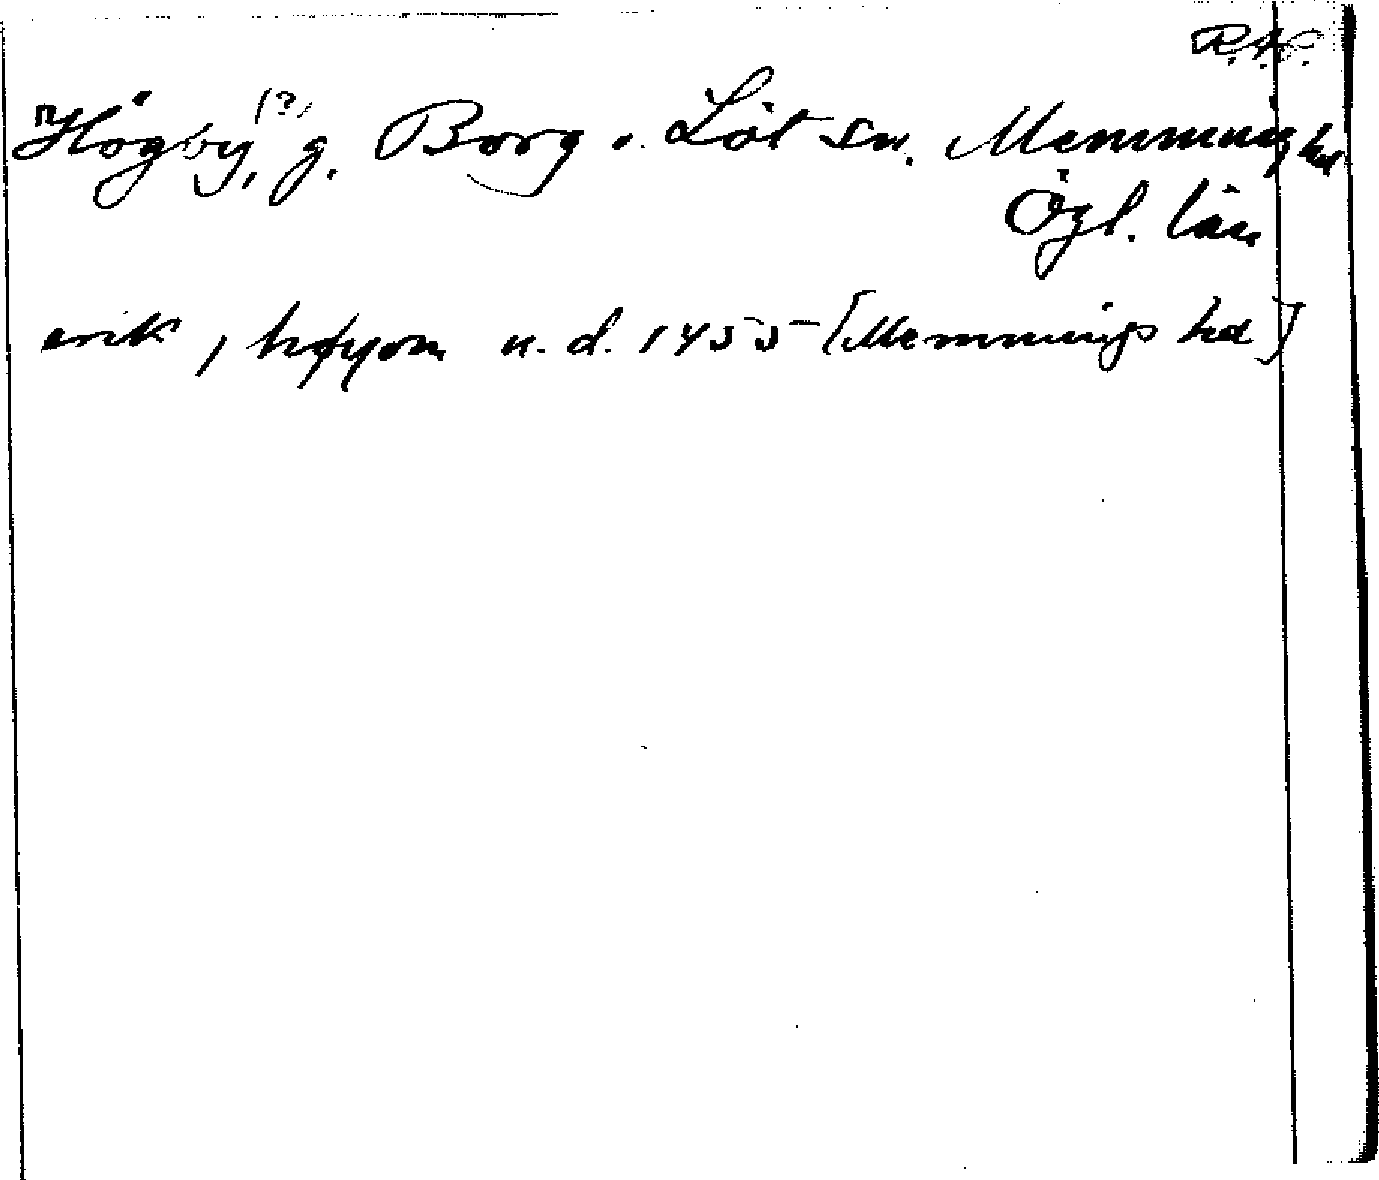 "Högby, (?) g. Borg o. Löt sn. Memming hd
Ögl. län
erik, i høyom u. d. 1455 [Memmings hd]